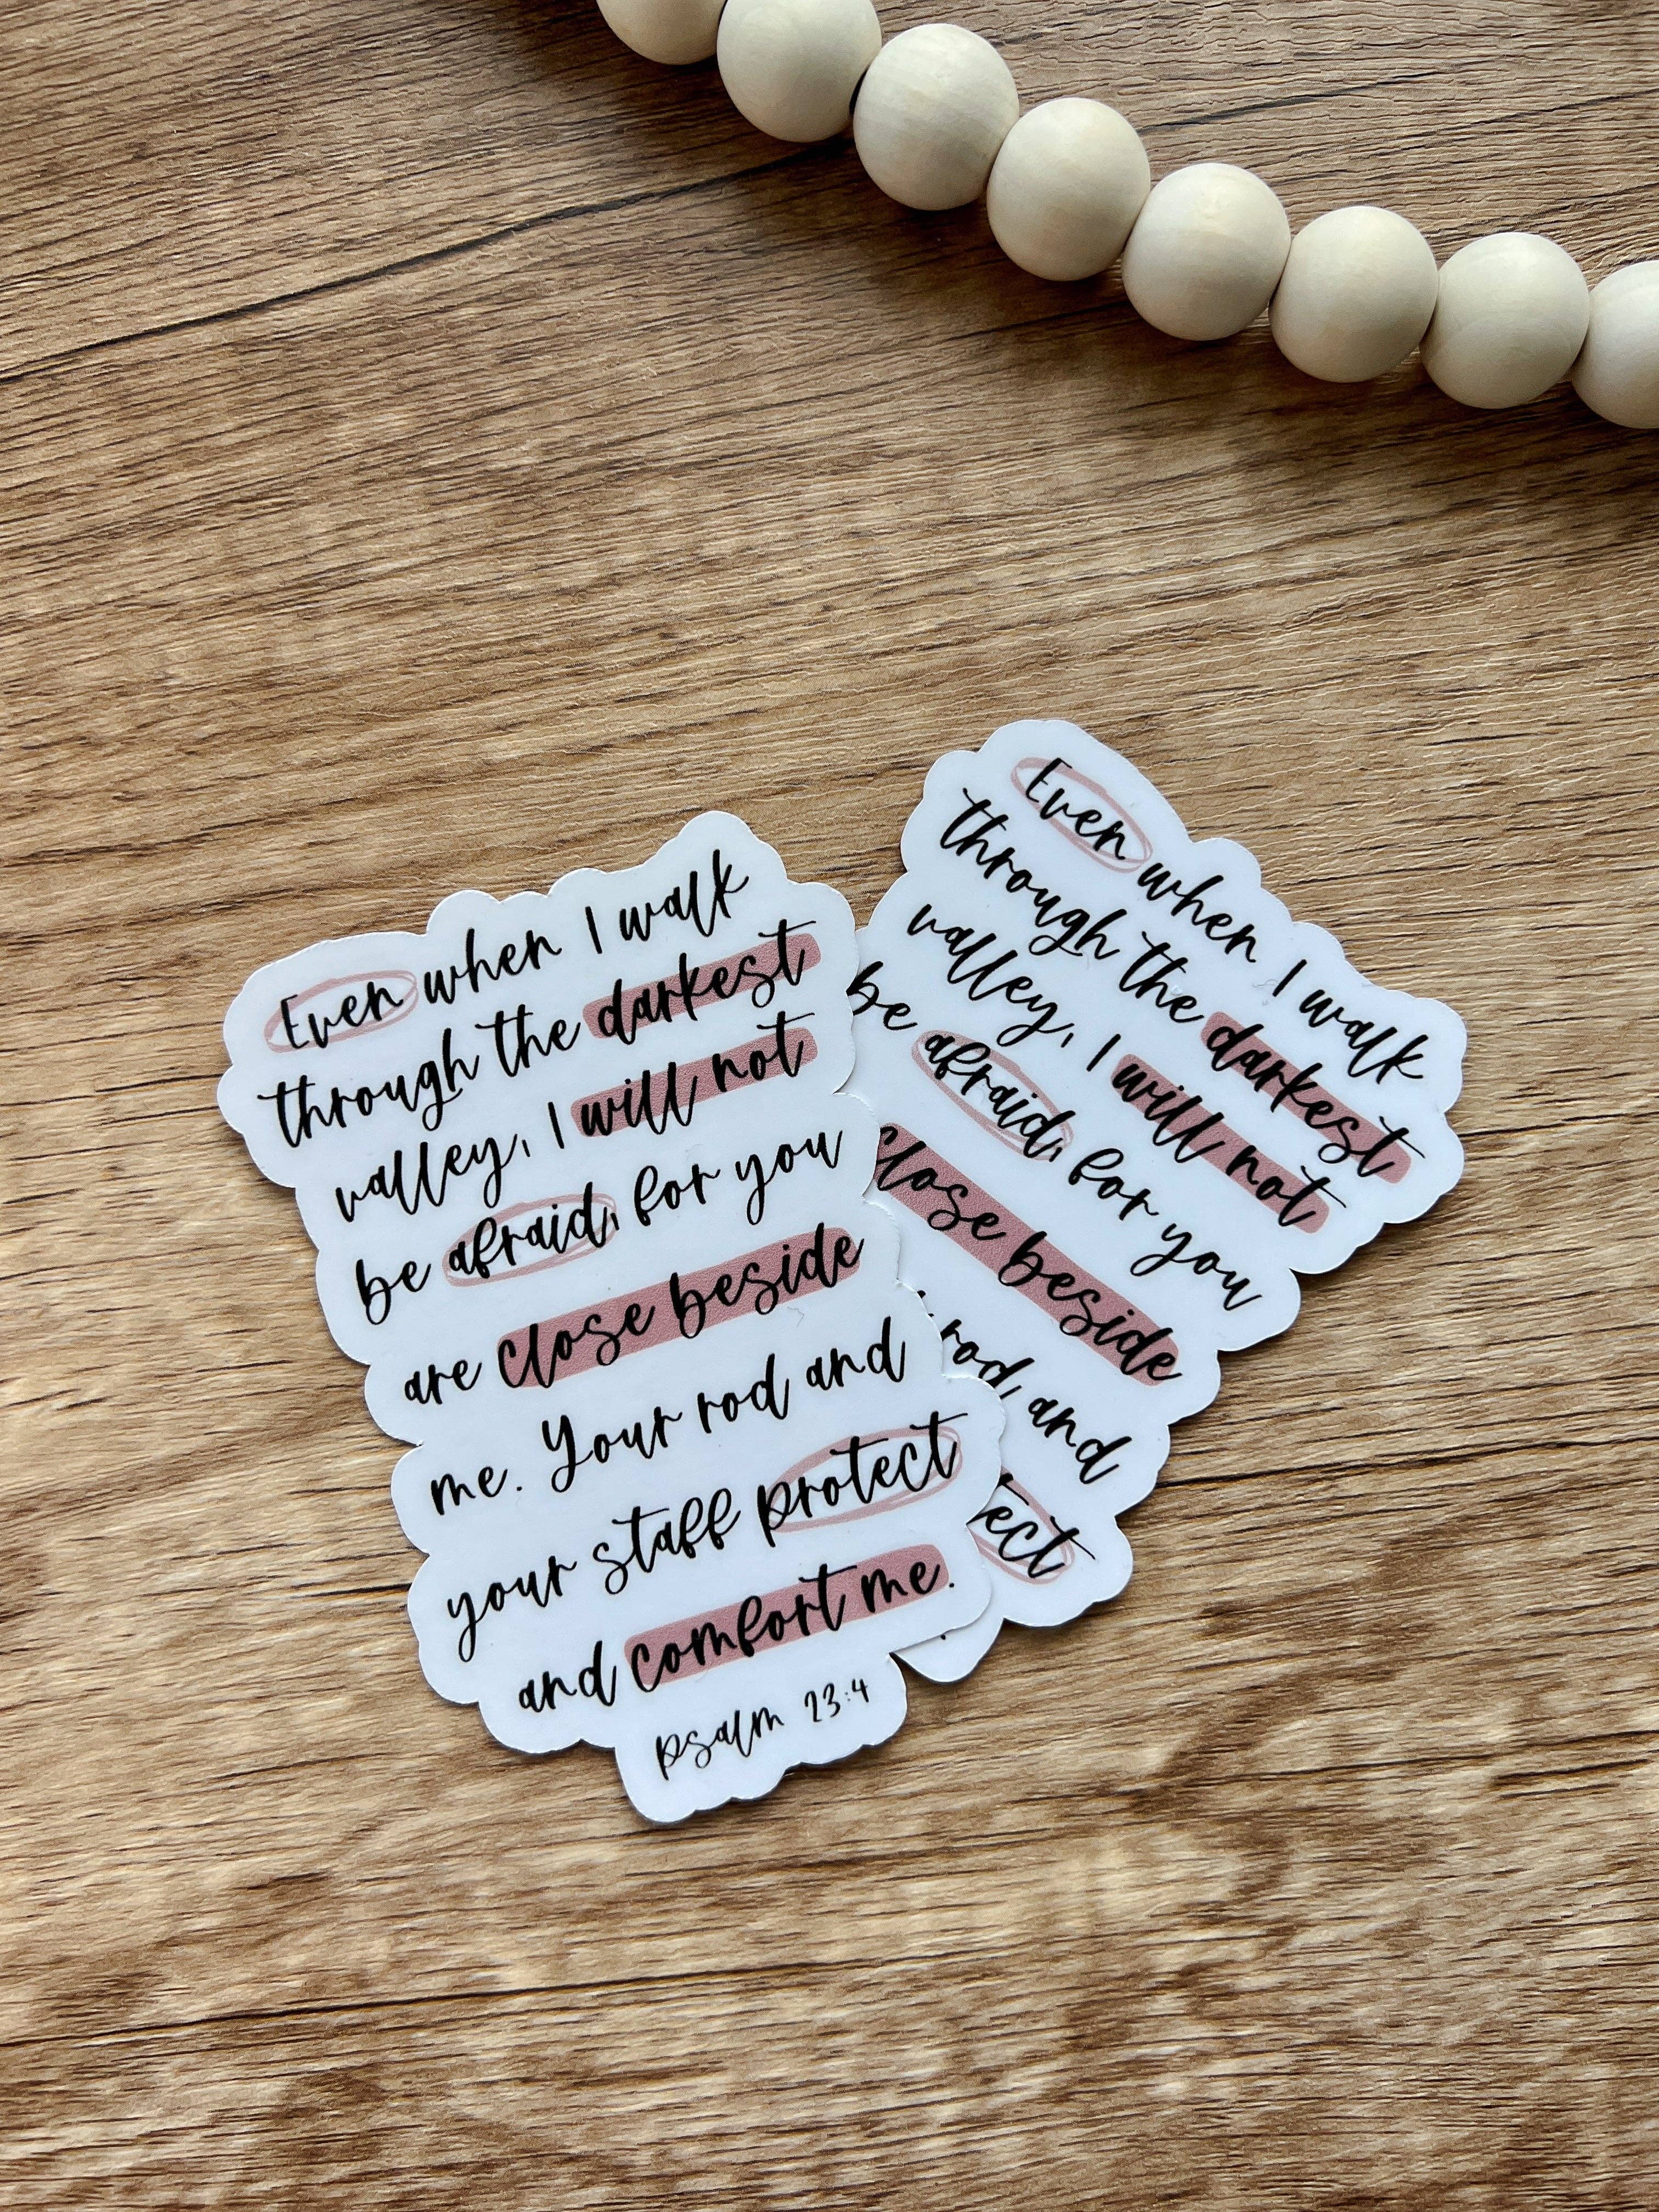 Even when I walk
through the darkest
valley, I will not
be afraid, for you
are close beside
me. Your rod and
your staff protect
and comfort me.
psalm 23:4
Even when I walk
through the darkest
valley, I will not
be afraid, for you
close beside
rod and
ect